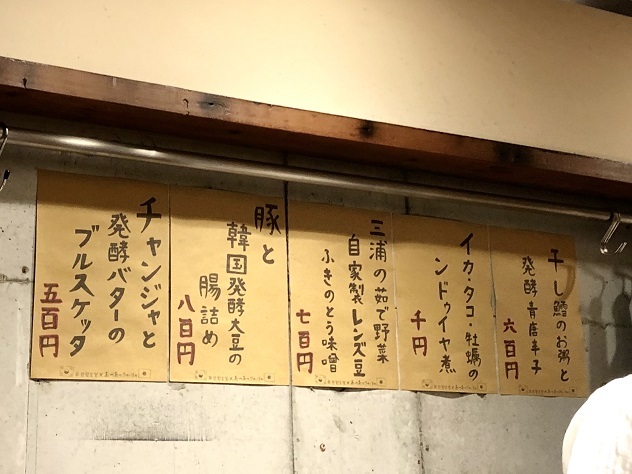 干し鱈のお粥と
発酵青唐辛子
六百円
イカ・タコ・牡蠣の
ンドゥイヤ煮
千円
三浦の茹で野菜
自家製レンズ豆
ふきのとう味噌
七百円
豚と
韓国発酵大豆の
腸詰め
八百円
チャンジャと
発酵バターの
ブルスケッタ
五百円